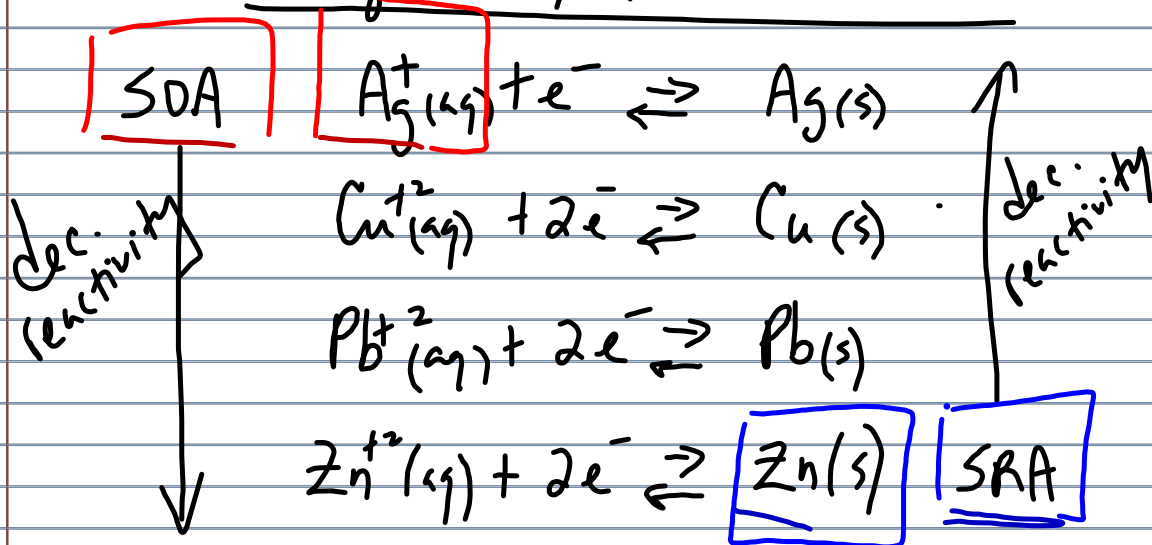 SOA Ag⁺(aq) + e⁻ ⇌ Ag(s)
dec. reactivity
Cu⁺²(aq) + 2e⁻ ⇌ Cu(s)
dec. reactivity
Pb⁺²(aq) + 2e⁻ ⇌ Pb(s)
Zn⁺²(aq) + 2e⁻ ⇌ Zn(s) SRA